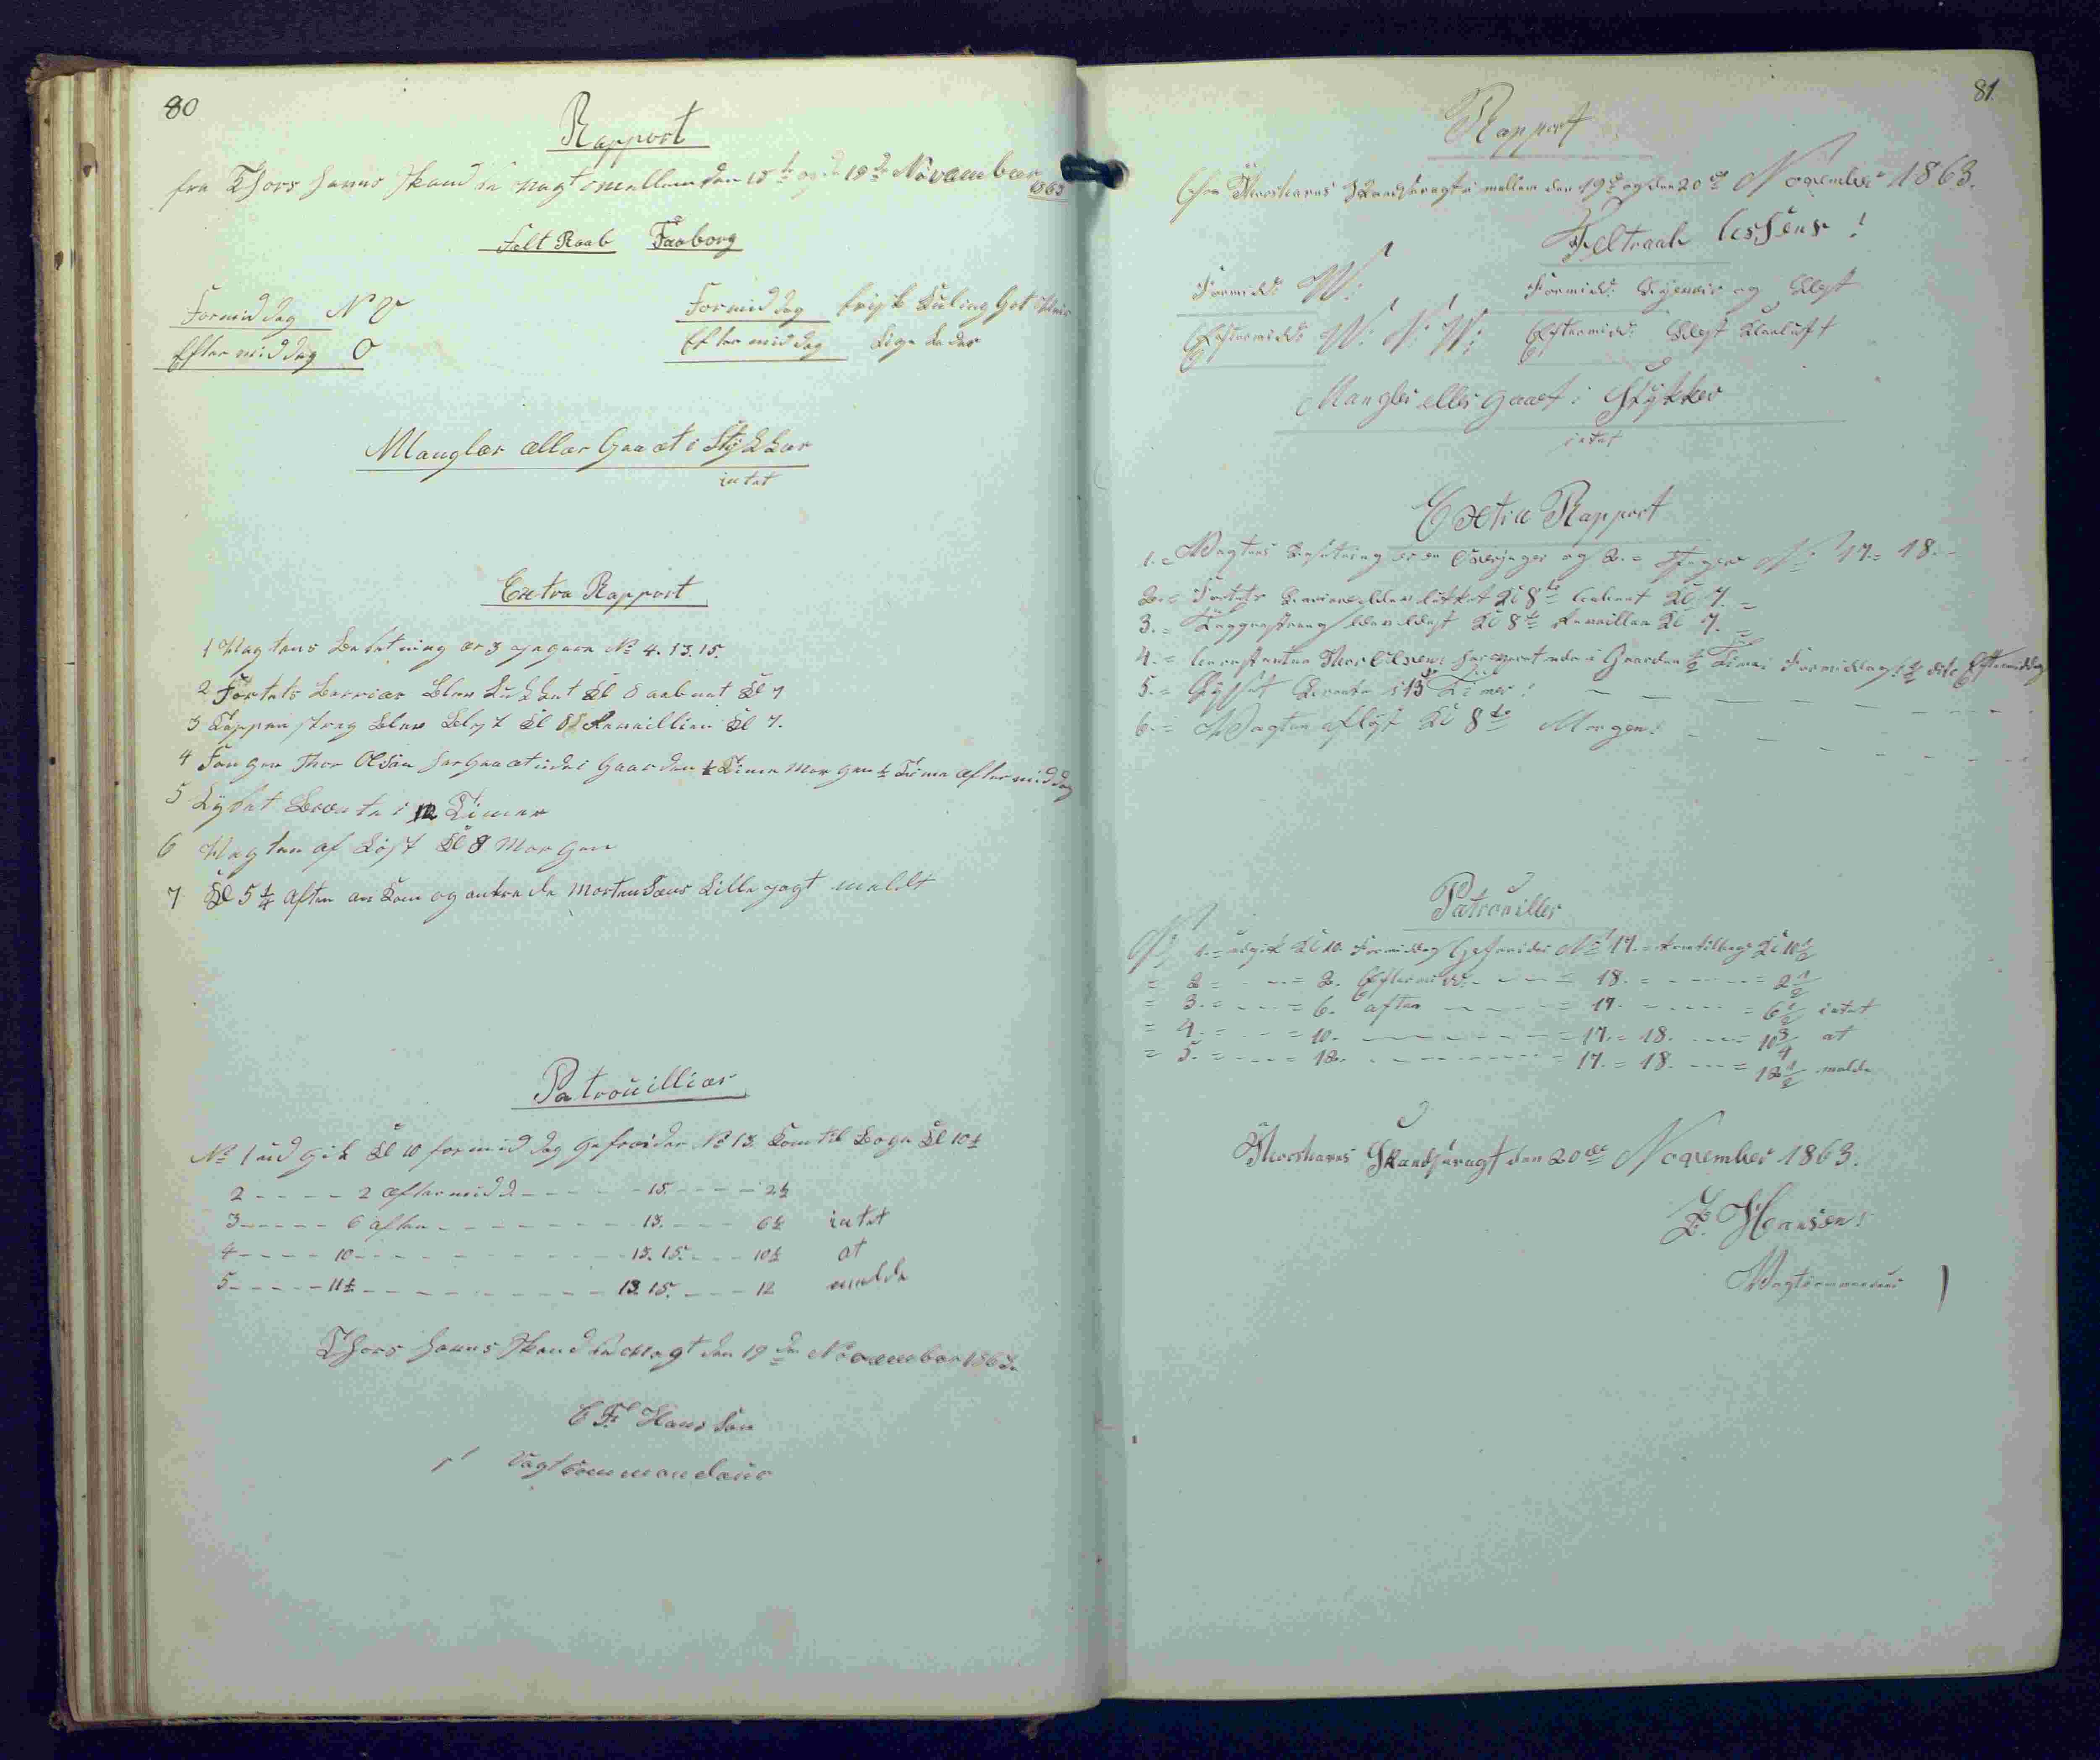 80
Rapport
fra Thorshavns Skandsevagt imellem den 18de og d 19de November 1863
Felt Raab Faaborg
Formiddag N O Formiddag frisk Kuling Got Veir
Eftermiddag O Eftermiddag Lige Ledes
Mangler eller Gaaet i Stykker
intet
Extra Rapport
1 Vagtens Besetning er 3 Jægere No 4. 13. 15.
2 Fortets Barrier blev Lukket Kl 8 aabnet Kl 7
3 Tappenstreg blev blest Kl 8 Revaillien Kl 7.
4 Fangen Thor Olsen har Gaaet ude i Gaarden ½ Time Morgen ½ Time Eftermiddag
5 Lyset Brente i 12 Timer
6 Vagten af Løst Kl 8 Morgen
7 Kl 5 ¼ Aften an Kom og ankrede Mortensens Lille Jagt meldt
Patrouillier
No 1 ud Gik Kl 10 formiddag Gefreider No 13 Kom tilbage Kl 10½
2 - - - - 2 Eftermidd - - - - 15. - - - - 2½
3 - - - - 6 Aften - - - - 13. - - - 6½ intet
4 - - - - 10 - - - - 13. 15. - - - 10½ at
5 - - - - 11½ - - - - 13. 15. - - - 12 melde
Thorshavns Skandsevagt den 19de November 1863.
C F Hansen
Vagtcommandeur
81
Rapport
Fra Thorshavns Skandsevagt i mellem den 19de og den 20de November 1863.
Feltraab Assens!
Formidd: W: Formidd: Regnveir og Blest
Eftermidd: W: N: W: Eftermidd: Blest Klarluft
Mangler eller gaaet i Stykker
intet
Extra Rapport
1. = Vagtens Besætning er en Overjæger og 2. = Jægere No 17. = 18. -
2. = Fortets Barrier blev lukket Kl 8te aabnet Kl 7. =
3. = Tappenstreng blev blest Kl 8te Revaillen Kl 7. =
4. = Arrestanten Thor Olsen har været ude i Gaarden ½ Time Formiddag ½ dito Eftermiddag
5. = Lyset Brente i 13 Timer!
6. = Vagten afløst Kl 8te Morgen!
Patrouiller
No 1. = udgik Kl 10. Formiddag Gefreider No 17. = kom tilbage Kl 10½
= 2 = - - - = 2. Eftermidd: - - - = 18. = - - - = 2½
= 3. = - - - = 6. Aften - - - = 17. - - - = 6½ intet
= 4. = - - - = 10. - - - = 17. = 18. - - - = 10¾ at
= 5. = - - - = 12. - - - = 17. = 18. - - - = 12½ melde
Thorshavns Skandsevagt den 20de November 1863.
Z. Hansen!
Vagtcommandeur